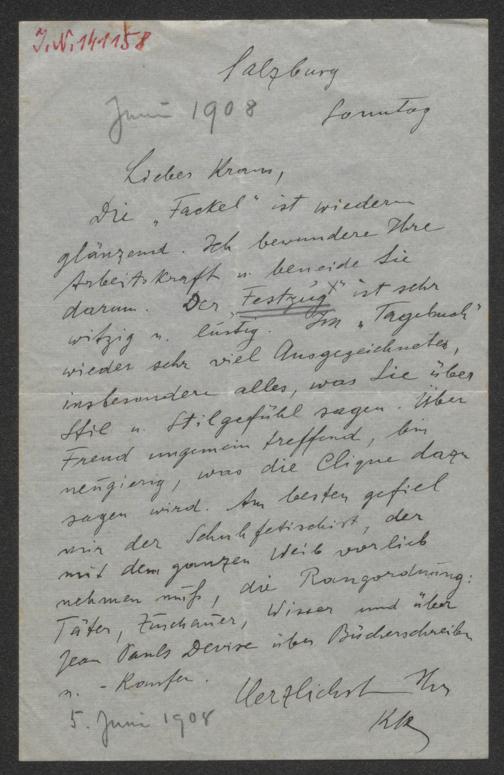 J.N. 141158
Salzburg
Juni 1908
Sonntag
Lieber Kraus,
Die „Fackel“ ist wiederum
glänzend. Ich bewundere Ihre
Arbeitskraft u. beneide Sie
darum. Der Festzug x ist sehr
witzig u. lustig. Im „Tagebuch“
wieder sehr viel Ausgezeichnetes,
insbesondere alles, was Sie über
Stil u. Stilgefühl sagen. Über
Freud ungemein treffend, bin
neugierig, was die Clique dazu
sagen wird. Am besten gefiel
mir der Schuhfetischist, der
mit dem ganzen Weib vorlieb
nehmen muß, die Rangordnung:
Täter, Zuschauer, Wisser und über
Jean Pauls Devise über Bücherschreiben
u. - Kaufen.
Herzlichst Ihr
5. Juni 1908